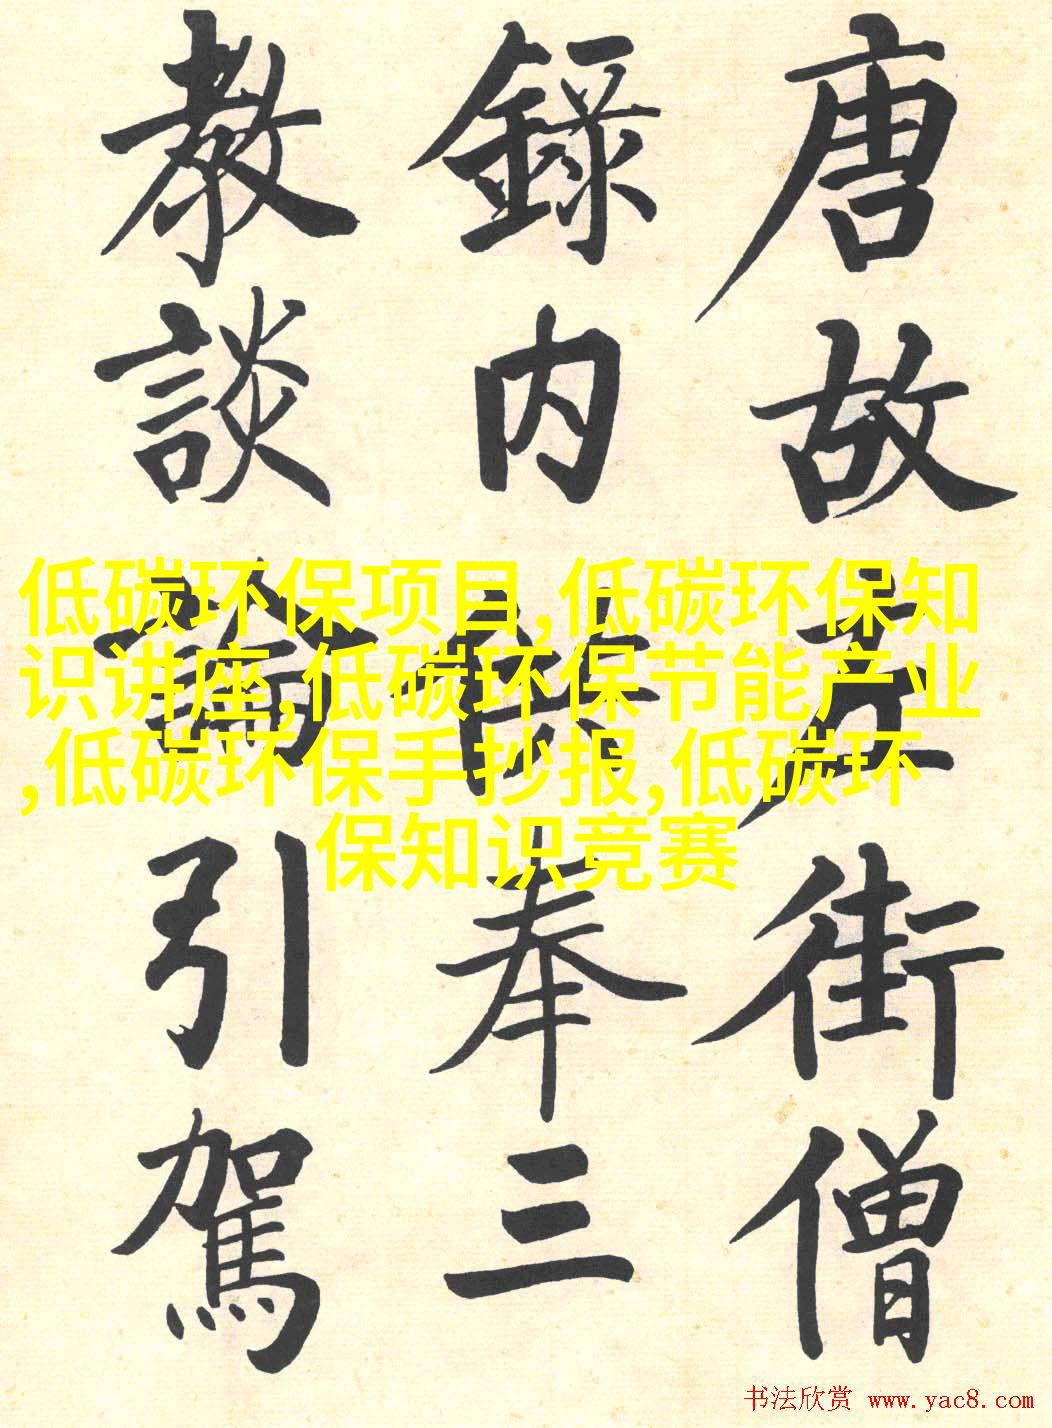 唐故左街僧
錄内供奉三
教談論引駕
低碳环保项目,低碳环保知
识讲座,低碳环保节能产业
,低碳环保手抄报,低碳环
保知识竞赛
书法欣赏 www.yac8.com